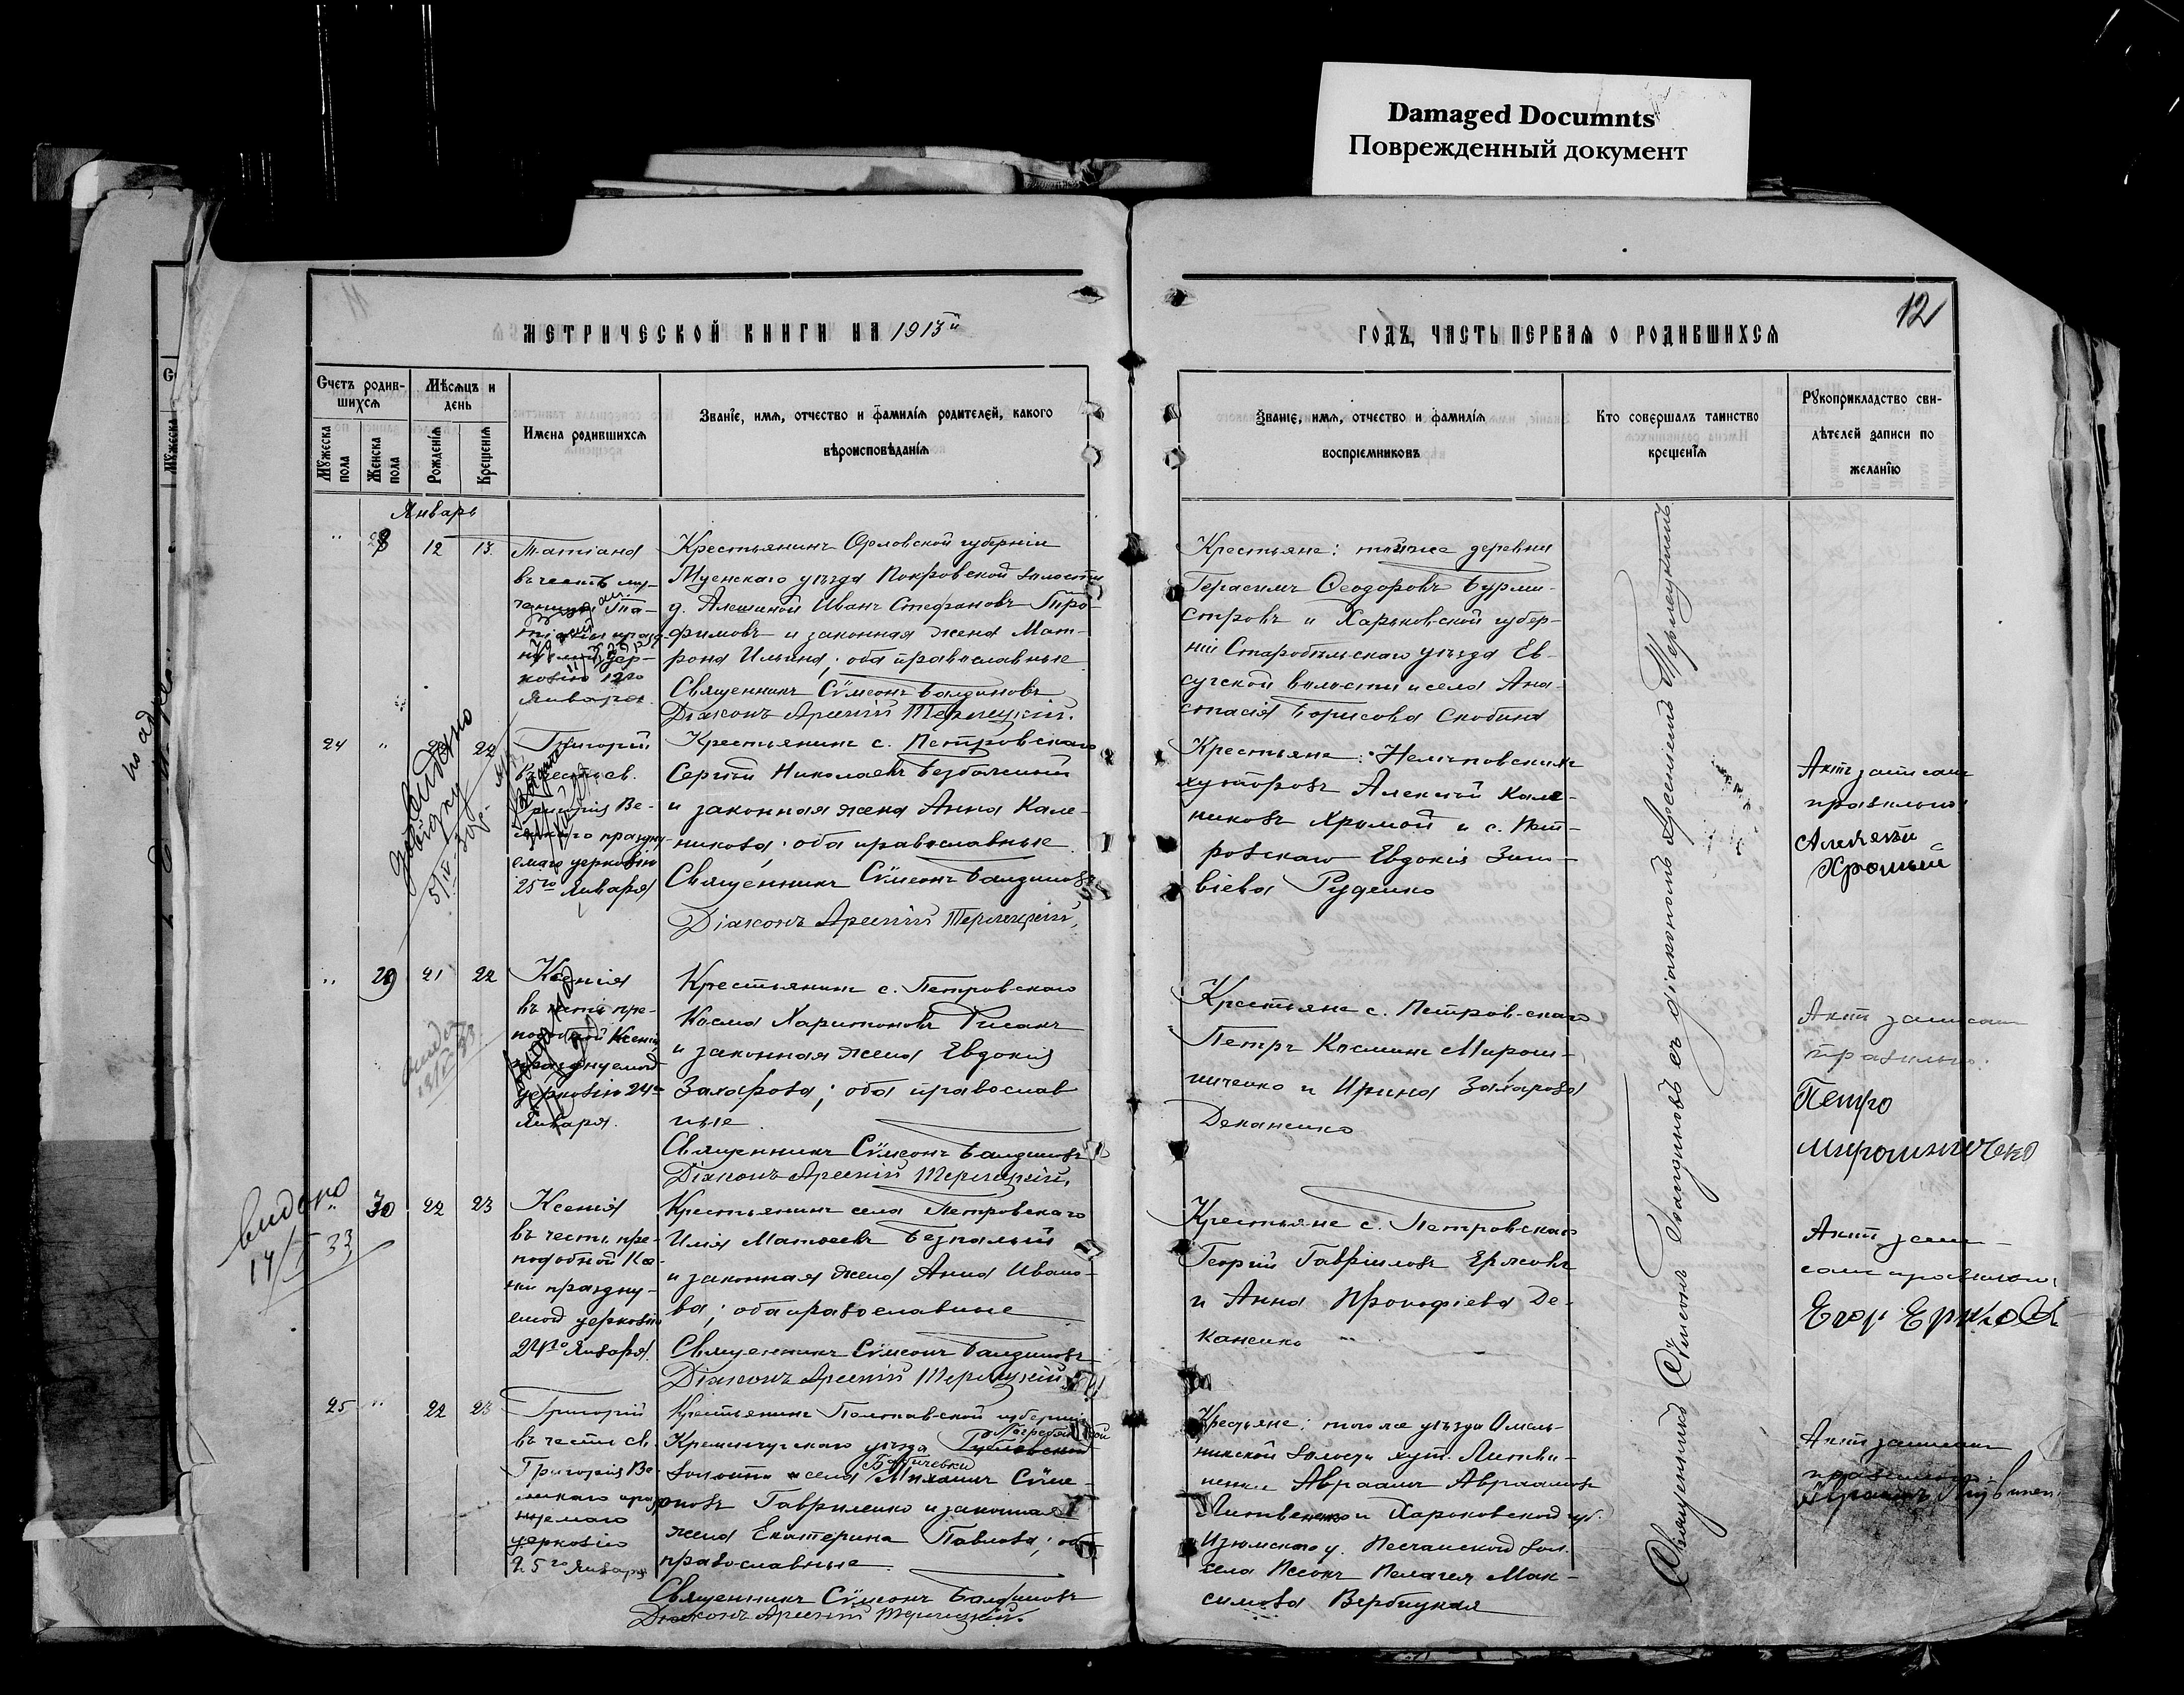 Damaged Documnts
Поврежденный документ
12
МЕТРИЧЕСКОЙ КНИГИ НА 1913й
ГОДЪ, ЧАСТЬ ПЕРВАЯ О РОДИВШИХСЯ
Счетъ родив-
шихся
Мѣсяцъ и
день
Мужеска пола
Женска пола
Рожденія
Крещенія
Имена родившихся
Званіе, имя, отчество и фамилія родителей, какого
вѣроисповѣданія
Званіе, имя, отчество и фамилія
воспріемниковъ
Кто совершалъ таинство
крещенія
Рукоприкладство сви-
дѣтелей записи по
желанію
Январь
" 28 12 13
Татіана
въ честь му-
ченицы Та-
12го
Января
Крестьянинъ Орловской губерніи
Мценскаго уѣзда Покровской волости
д. Алешиной Иванъ Стефановъ Тро-
фимовъ и законная жена Мат-
рона Ильина; оба православные
Священникъ Сѵмеонъ Балдиновъ
Діаконъ Арсеній Терлецкій.
Крестьяне: тойже деревни
Герасимъ Ѳеодоровъ Бурми-
стровъ и Харьковской губер-
ніи Старобѣльскаго уѣзда Ев-
сугской волости и села Ана-
стасія Борисова Скобина
24 " 22
Григорій
въ честь св.
Григорія Ве-
ликаго праздну-
емаго церковію
25го Января
Крестьянинъ с. Петровскаго
Сергій Николаевъ Безпалый
и законная жена Анна Кале-
никова; оба православные
Священникъ Сѵмеонъ Балдиновъ
Діаконъ Арсеній Терлецкій.
Крестьяне:
хуторовъ Алексій Кале-
никовъ Хромой и с. Пет-
ровскаго Евдокія Зин-
віева Руденко
Актъ записанъ
правильно
Алексѣй
Хромый
" 29 21 22
Ксенія
въ честь пре-
подобной Ксеніи
празднуемой
церковію 24го
Января.
Крестьянинъ с. Петровскаго
Косма Харитоновъ Рисакъ
и законная жена Евдокія
Захарова; оба православ
ные
Священникъ Сѵмеонъ Балдиновъ
Діаконъ Арсеній Терлецкій.
Крестьяне с. Петровскаго
Петръ Косминъ Мирош-
ниченко и Ирина Захарова
Деканенко
Актъ записанъ
правильно.
Петро
мирошниченко
видано
14/I 33
" 30 22 23
Ксенія
въ честь пре-
подобной Ксе-
ніи праздну-
емой церковію
24го Января.
Крестьянинъ села Петровскаго
Илія Матвеевъ Безпалый
и законная жена Анна Ивано-
ва; оба православные
Священникъ Сѵмеонъ Балдиновъ
Діаконъ Арсеній Терлецкій
Крестьяне с. Петровскаго
Георгій Гавріиловъ Ержовъ
и Анна Прокофіева Де-
каненко
Актъ запи-
санъ правильно
Егор
25 " 22 23
Григорій
въ честь св.
Григорія Ве-
ликаго празд
нуемаго
церковію
25го Января
Крестьянинъ Полтавской губерніи
Кременчугскаго уѣзда
волости и села Михаилъ Сѵме-
оновъ Гавриленко и законная
жена Екатерина Павлова; оба
православные
Священникъ Сѵмеонъ Балдиновъ
Діаконъ Арсеній Терлецкій.
Крестьяне: того же уѣзда Омель-
никской волости хут. Литви-
ненки Авраамъ Авраамовъ
Литвиненко и Харьковской губ.
Изюмскаго у. Песчанской вол.
села Песокъ Пелагея Мак-
симова Вербицкая
Актъ записанъ
правильно
Священникъ Сѵмеонъ Балдиновъ съ діакономъ Арсеніемъ Терлецкимъ